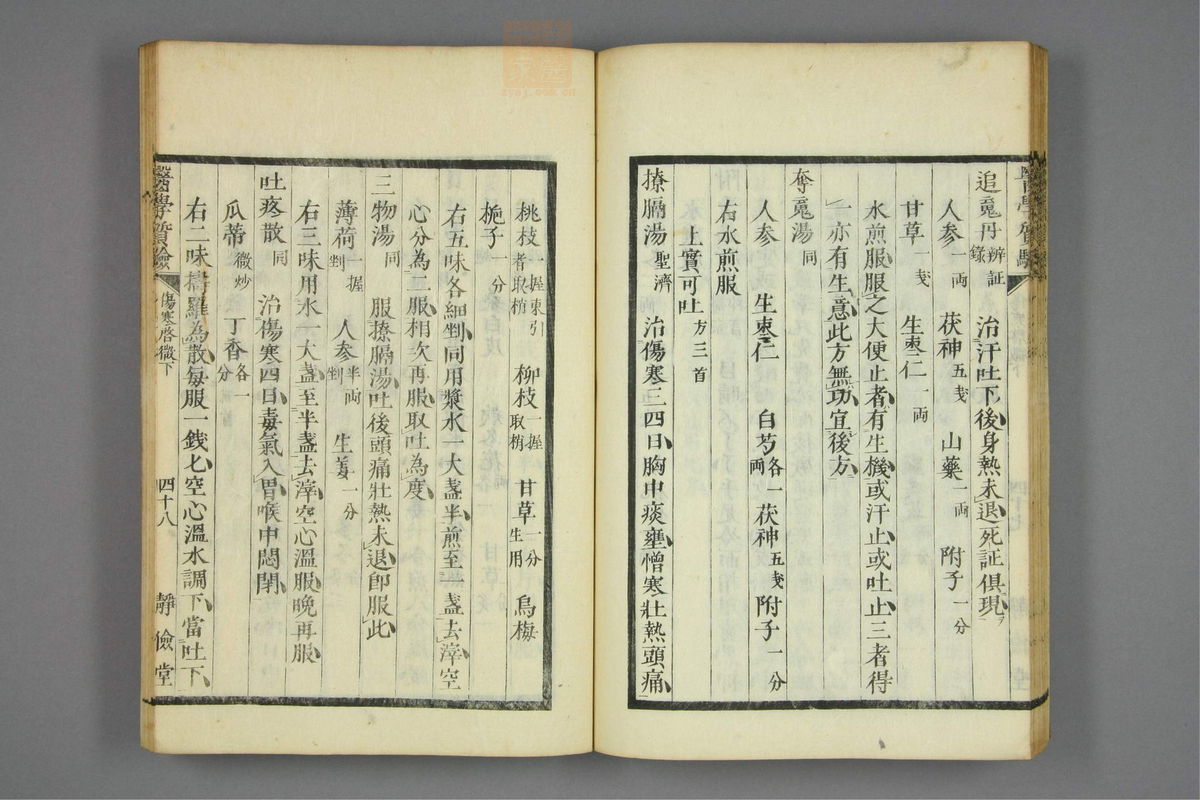 追䰟丹 辨証錄 治汗吐下後身熱未退死証俱現
人参一両 茯神五戔 山藥一両 附子一分
甘草一戔 生棗仁一両
水煎服服之大便止者有生機或汗止或吐止三者得
一亦有生意此方無功宜後方
奪䰟湯 同
人参 生棗仁 白芍各一両 茯神五戔 附子一分
右水煎服
上實可吐 方三首
撩膈湯 聖濟 治傷寒三四日胸中痰壅憎寒壯熱頭痛
桃枝一握東引者取梢 柳枝一握取梢 甘草一分生用 烏梅
梔子一分
右五味各細剉同用漿水一大盞半煎至一盞去滓空
心分為二服相次再服取吐為度
三物湯 同 服撩膈湯吐後頭痛壯熱未退卽服此
薄荷一握剉 人参半両剉 生姜一分
右三味用水一大盞至半盞去滓空心溫服晚再服
吐疼散 同 治傷寒四日毒氣入胃喉中悶閉
瓜蒂微炒 丁香各一分
右二味擣羅為散每服一錢匕空心溫水調下當吐下
醫學質驗 傷寒啓微下 四十八 靜儉堂